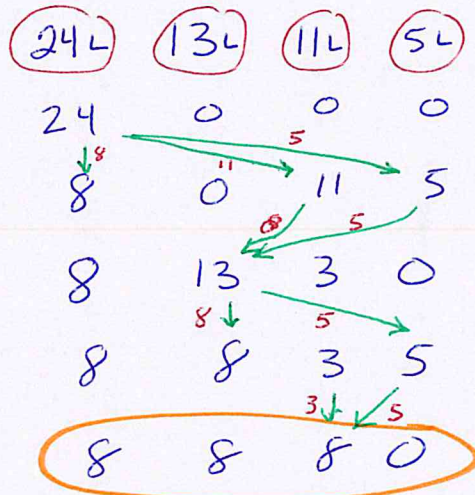 24L 13L 11L 5L
24 0 0 0
5
8 11
8 0 11 5
8 5
8 13 3 0
8 5
8 8 3 5
3 5
8 8 8 0